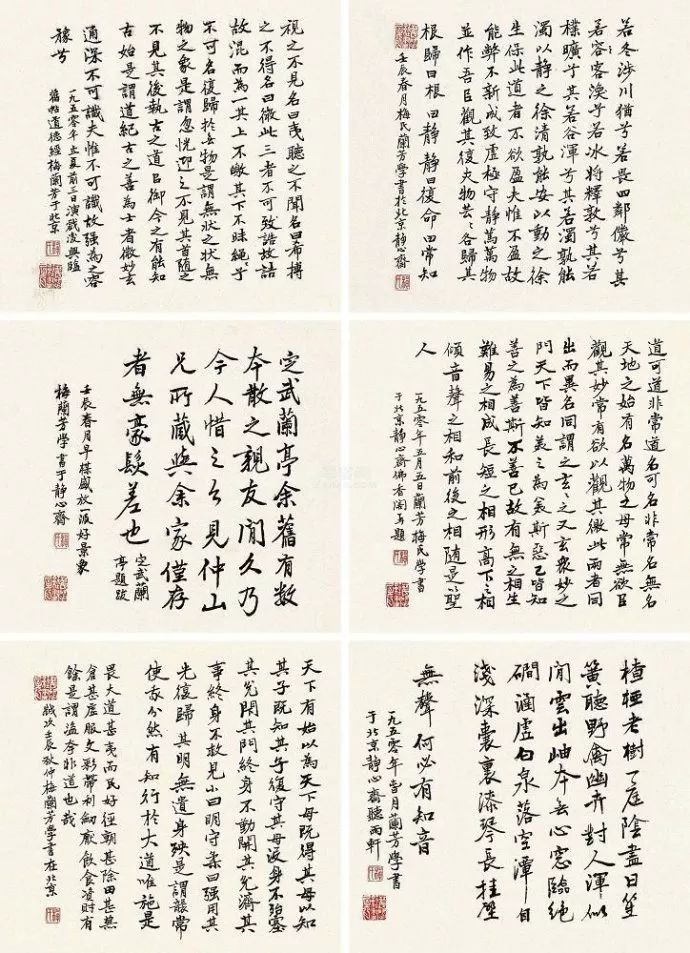 視之不見名曰夷聽之不聞名曰希搏
之不得名曰微此三者不可致詰故詰
故混而為一其上不皦其下不昧繩〻兮
不可名復歸於無物是謂無狀之狀無
物之象是謂忽恍迎之不見其首隨之
不見其後執古之道以御今之有能知
古始是謂道紀古之善為士者微妙玄
通深不可識夫惟不可識故強為之容
豫兮
一九五零年立夏前三日演戲後興臨
舊帖道德經梅蘭芳于北京
若冬涉川猶兮若畏四鄰儼兮其
若容容渙兮若冰將釋敦兮其若
樸曠兮其若谷渾兮其若濁孰能
濁以靜之徐清孰能安以動之徐
生保此道者不欲盈夫惟不盈故
能弊不新成致虛極守靜篤萬物
並作吾以觀其復夫物芸〻各歸其
根歸曰根曰靜靜曰復命曰常知
壬辰春月梅氏蘭芳學書於北京靜心齋
定武蘭亭余舊有數
本散之親友間久乃
今人惜之今見仲山
兄所藏與余家僅存
者無豪髮差也
定武蘭
亭題跋
壬辰春月早盛放一派好景象
梅蘭芳學書于靜心齋
道可道非常道名可名非常名無名
天地之始有名萬物之母常無欲以
觀其妙常有欲以觀其徼此兩者同
出而異名同謂之玄〻之又玄眾妙之
門天下皆知美之為美斯惡已皆知
善之為善斯不善已故有無之相生
難易之相成長短之相形高下之相
傾音聲之相和前後之相隨是以聖
人
一九五零年五月五日蘭芳梅氏學書
于北京靜心齋佛香閣題
天下有始以為天下母既得其母以知
其子既知其子復守其母沒身不殆塞
其兌閉其門終身不勤開其兌濟其
事終身不救見小曰明守柔曰強用其
光復歸其明無遺身殃是謂襲常
使我介然有知行於大道唯施是
畏大道甚夷而民好徑朝甚除田甚蕪
倉甚虛服文彩帶利劍厭飲食資財有
餘是謂盜夸非道也哉
歲次壬辰秋仲梅蘭芳學書在北京
楂枒老樹下庭陰盡日笙
簧聽野禽幽卉對人渾似
閒雲出岫本無心窗臨絕
磵涵虛白泉落空潭自
淺深囊裏漆琴長挂壁
無聲何必有知音
一九五零年月蘭芳學書
于北京靜心齋聽雨軒